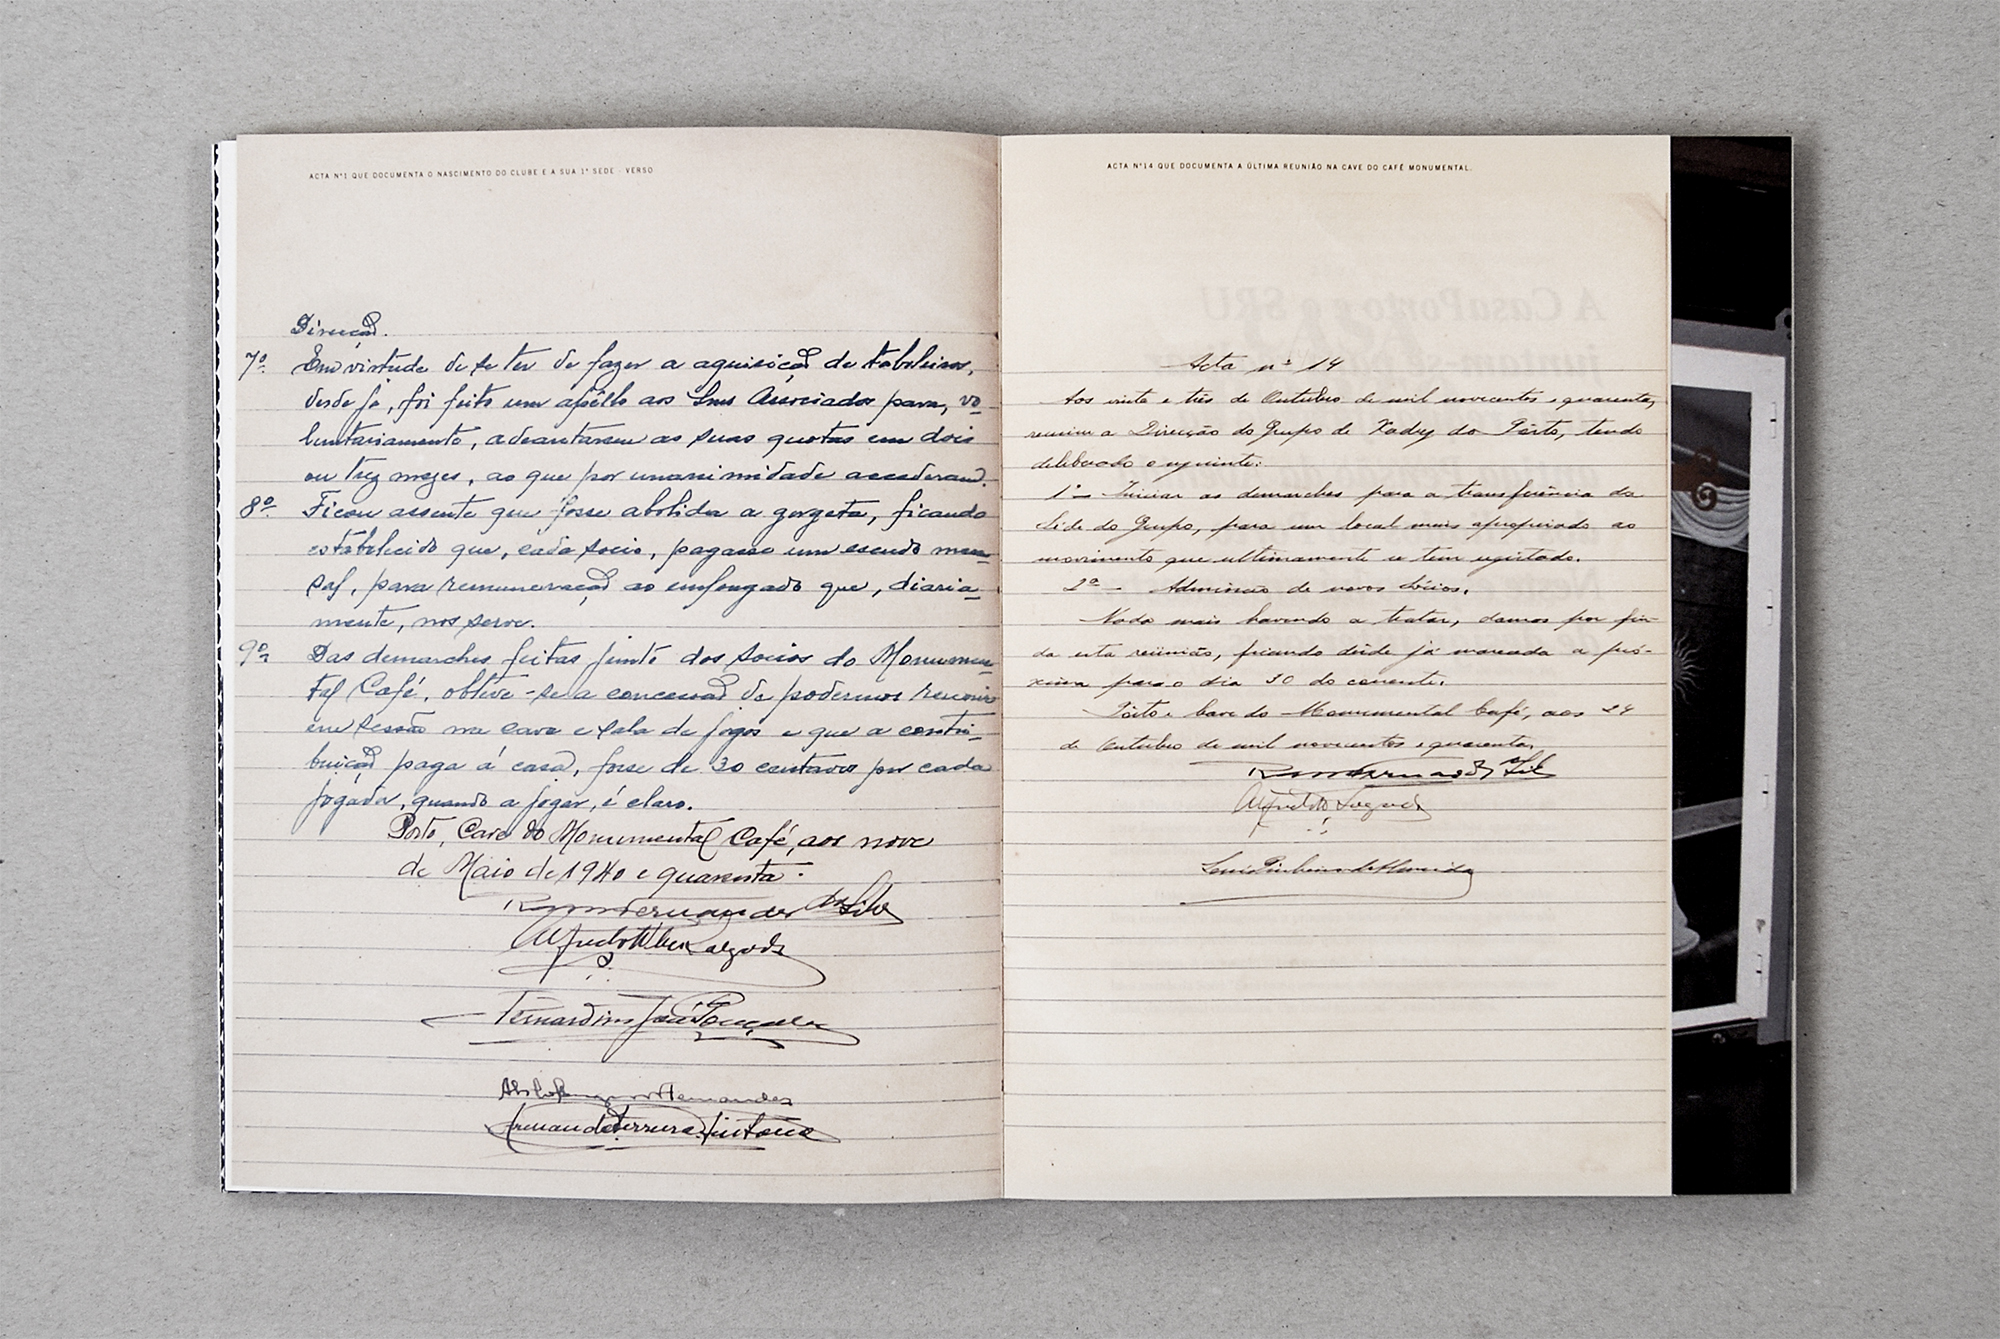 ACTA Nº1 QUE DOCUMENTA O NASCIMENTO DO CLUBE E A SUA 1ª SEDE - VERSO
Direcçaõ.
7º- Em virtude de se ter de fazer a aquisiçaõ de taboleiros,
desde já, foi feito um apêllo aos Snrs Associados para, vo-
luntariamente, adeantarem as suas quotas em dois
ou trez mezes, ao que por unanimidade accederam.
8º- Ficou assente que fosse abolida a gorgeta, ficando
estabelecido que, cada socio, pagasse um escudo men-
sal, para remuneraçaõ ao empregado que, diaria-
mente, nos serve.
9º- Das demarches feitas junto dos socios do Monumen-
tal Café, obteve-se a concessaõ de podermos reunir
em sessão na cave e sala de jogos e que a contri-
buiçaõ paga á casa, fosse de 30 centavos por cada
jogador, quando a jogar, é claro.
Porto, Cave do Monumental Café, aos nove
de Maio de 1940 e quarenta.
Fernandes da Silva
Alfredo Salgado
Bernardino José Gonçalves
Fernandes
Armando Ferreira
ACTA Nº14 QUE DOCUMENTA A ÚLTIMA REUNIÃO NA CAVE DO CAFÉ MONUMENTAL.
A CasaPorto e o SRU
juntam-se
Acta nº 14
Aos vinte e três de Outubro de mil novecentos e quarenta,
reuniu a Direcção do Grupo de Xadrez do Porto, tendo
deliberado o seguinte:
1º- Iniciar as demarches para a transferência da
Séde do Grupo, para um local mais apropriado ao
movimento que ultimamente se tem registado.
2º- Admissão de novos sócios.
Nada mais havendo a tratar, damos por fin-
da esta reünião, ficando désde já marcada a pró-
xima para o dia 30 do corrente.
Pôrto e Cave do Monumental Café, aos 24
de Outubro de mil novecentos e quarenta.
Fernandes Silva
Alfredo Salgado
Luis Pinheiro de Almeida